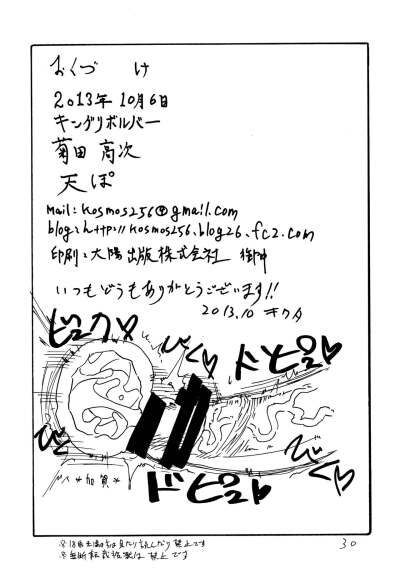 おくづけ
2013年10月6日
キングリボルバー
菊田 高次
天ぽ
Mail:kosmos256@gmail.com
blog:http://kosmos256.blog26.fc2.com
印刷:大陽出版株式会社 御中
いつもどうもありがとうございます!!
2013.10 キクタ
ビュク♡
びく♡
ドピュ♡
びく
びく♡
*加賀*
ドピュ♡
※18歳未満の方は見たり読んだり禁止です
※無断転載複製は禁止です
30